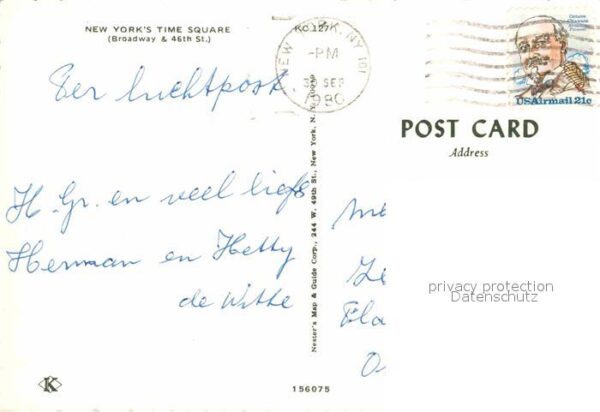 NEW YORK'S TIME SQUARE
(Broadway & 46th St.)
KC 127
NEW YORK, NY 101
-PM
30 SEP
1980
Octave
Chanute
Aviation
Pioneer
USAirmail 21c
Per luchtpost
POST CARD
Address
H. Gr. en veel liefs
Herman en Hetty
de Witte
Nester's Map & Guide Corp., 244 W. 49th St., New York, N.Y. 10019
privacy protection
Datenschutz
K
156075